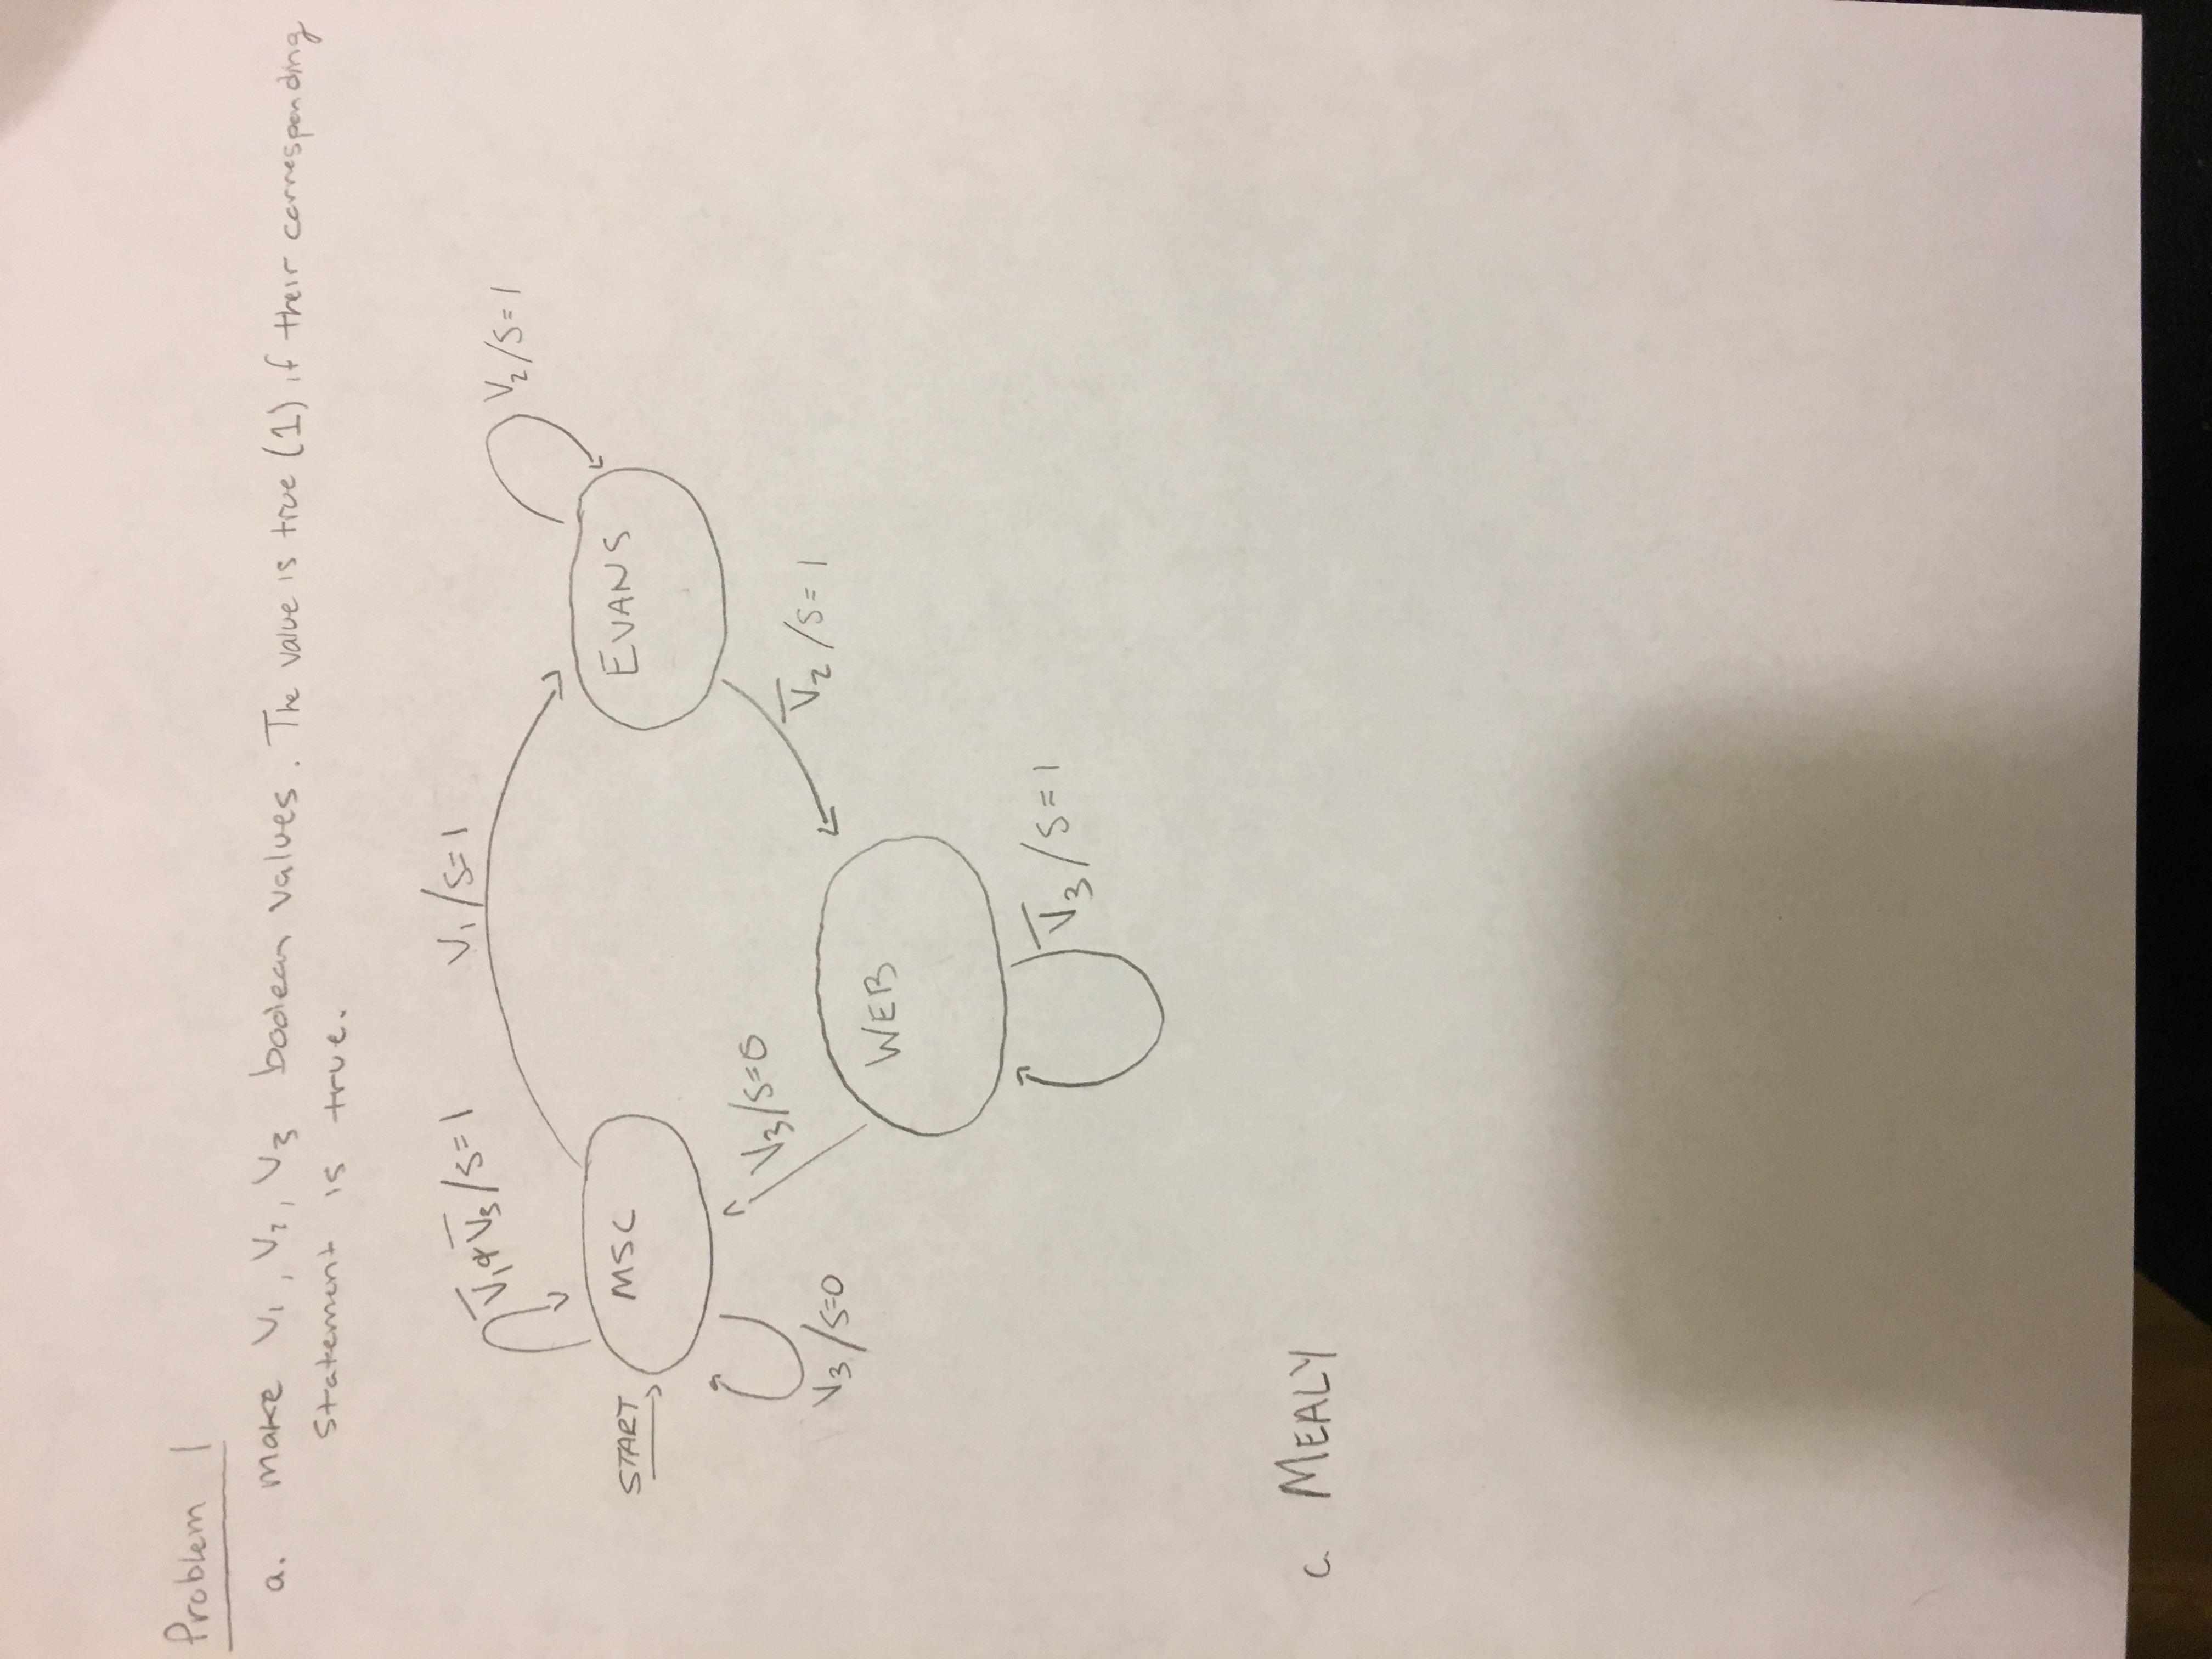 Problem 1
a. make V₁, V₂, V₃ boolean values. The value is true (1) if their corresponding
statement is true.
V̅₁ & V̅₃/S=1
V₁/S=1
V₂/S=1
START
MSC
EVANS
V₃/S=0
V̅₂/S=1
V₃/S=0
WEB
V̅₃/S=1
c. MEALY